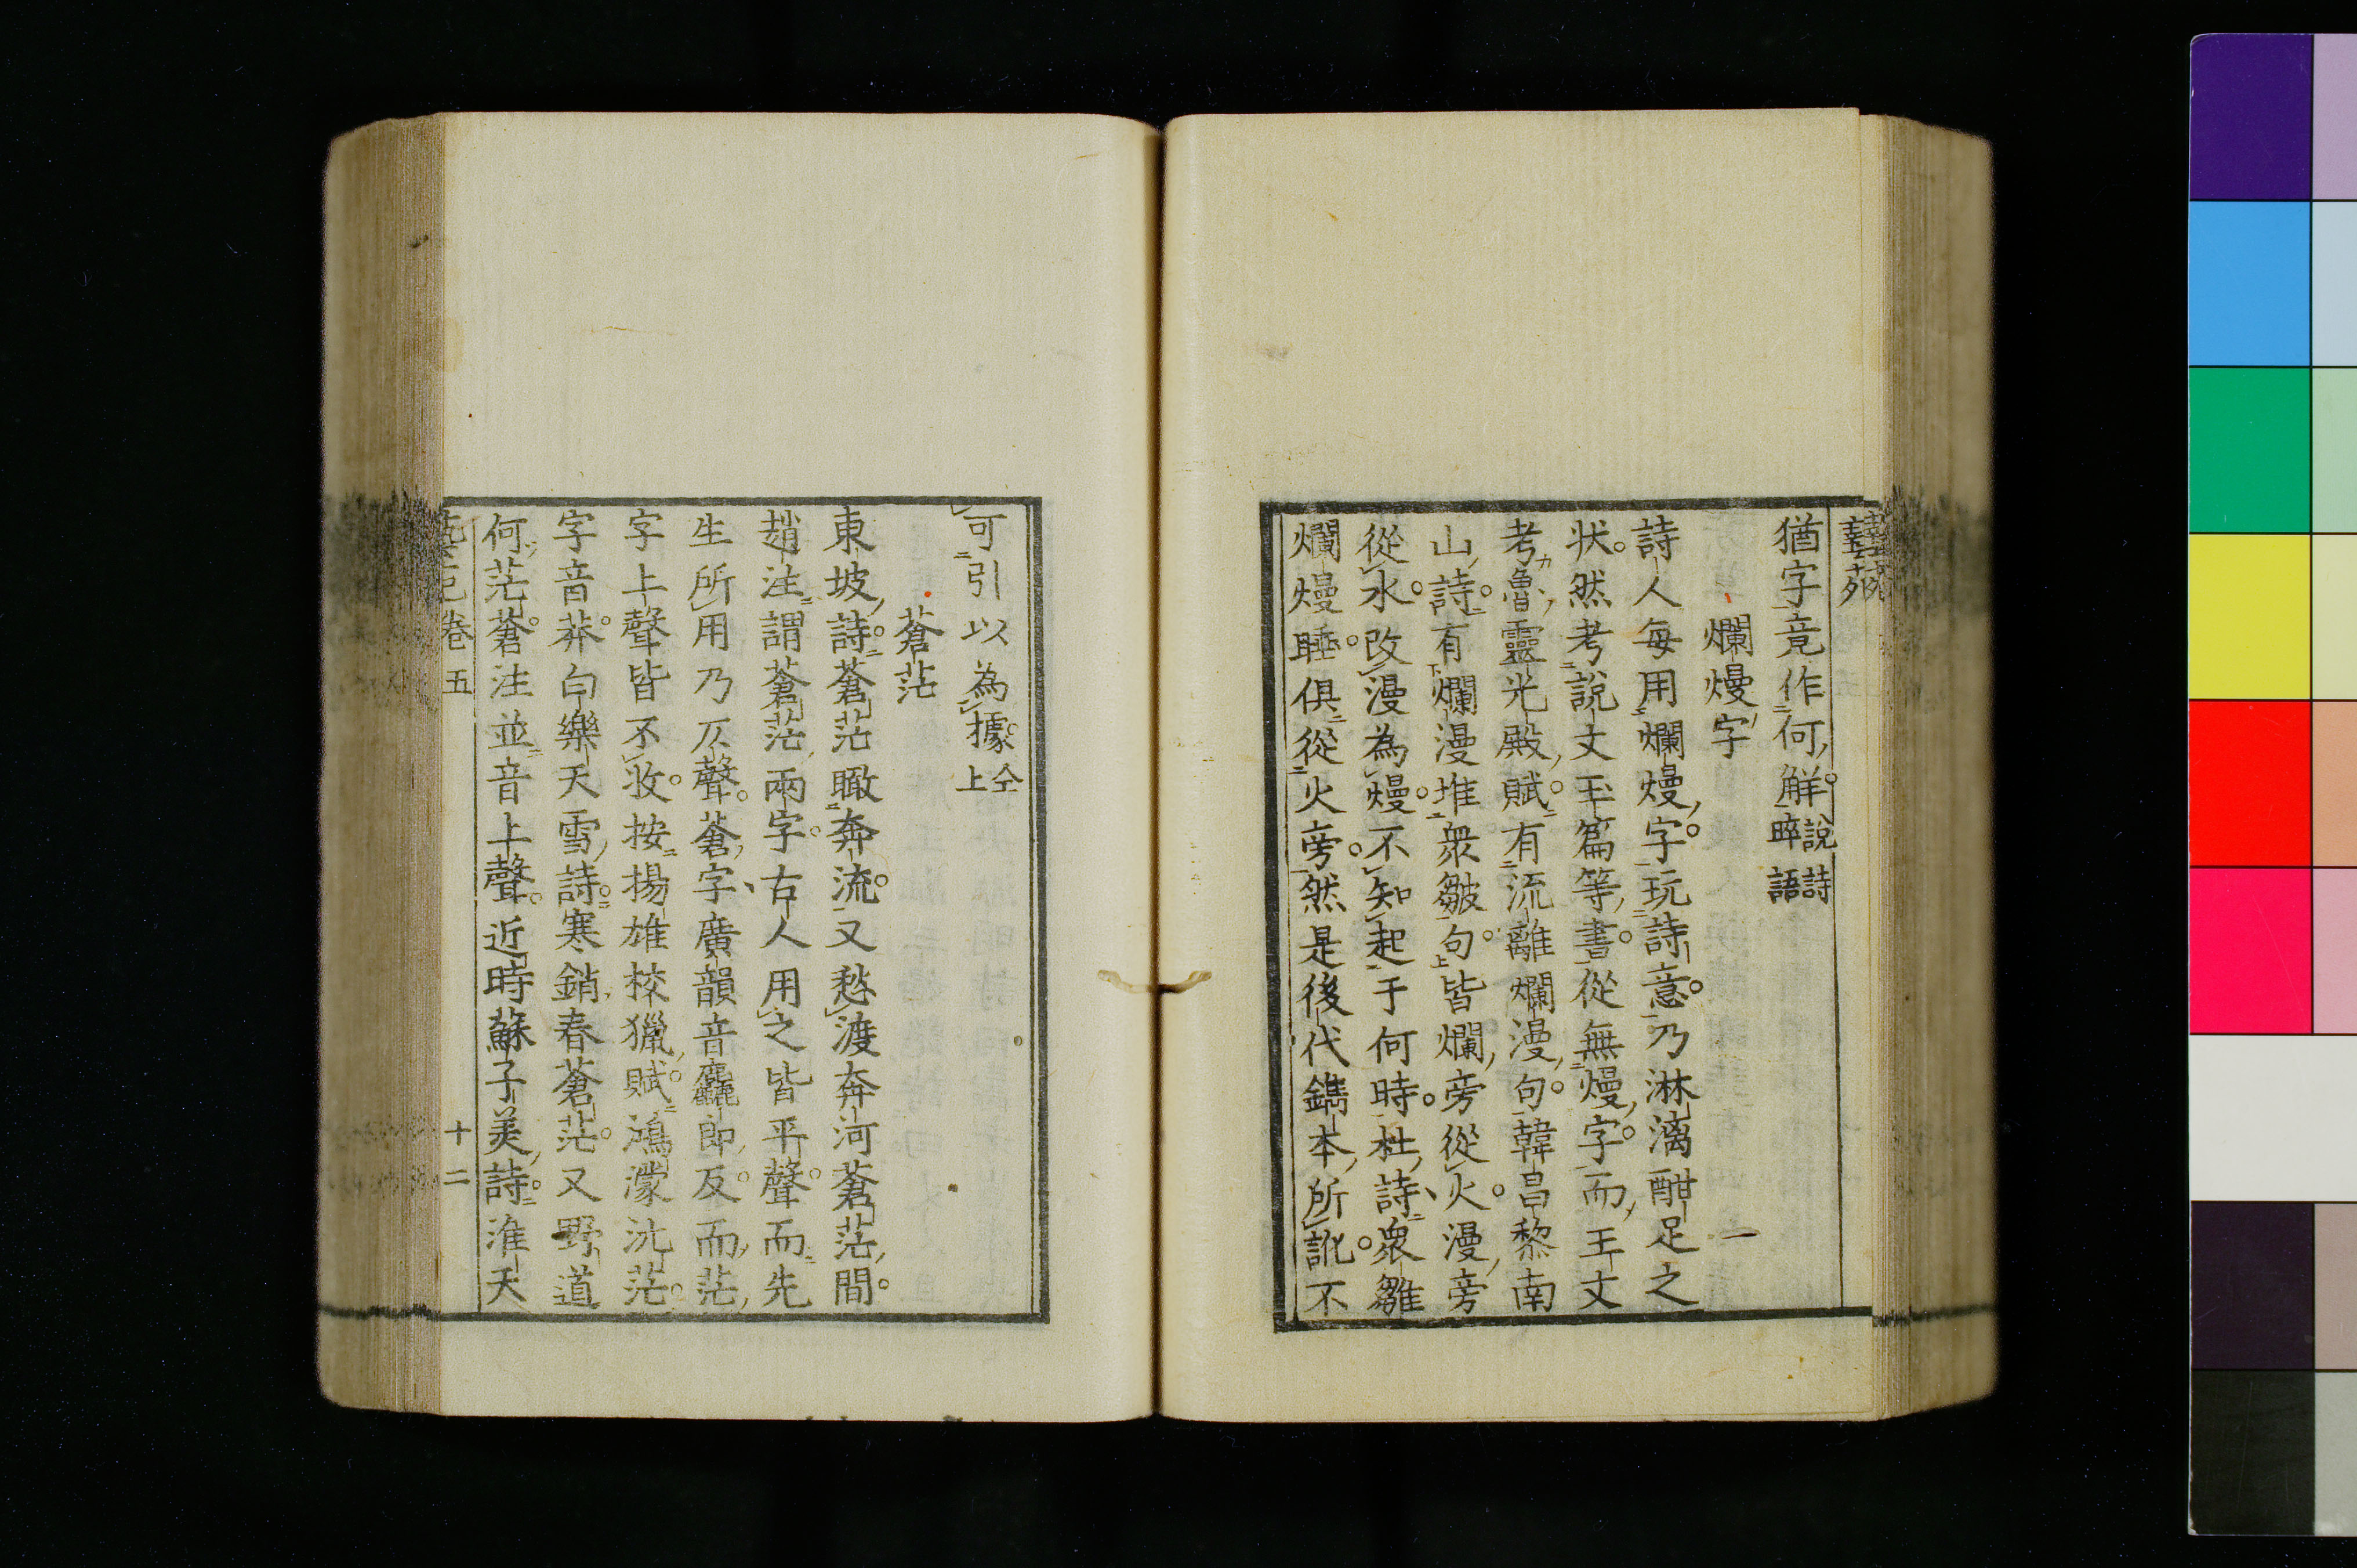 猶字竟作何解說詩晬語
爛熳字
詩人每用爛熳字玩詩意乃淋漓酣足之
狀然考說文玉篇等書從無熳字而王文
考魯靈光殿賦有流離爛漫句韓昌黎南
山詩有爛漫堆衆皺句皆爛旁從火漫旁
從水改漫為熳不知起于何時杜詩衆雛
爛熳睡俱從火旁然是後代鐫本所訛不
可引以為據仝上
蒼茫
東坡詩蒼茫瞰奔流又愁渡奔河蒼茫間
趙注謂蒼茫兩字古人用之皆平聲而先
生所用乃仄聲蒼字廣韻音麤郎反而茫
字上聲皆不收按揚雄校獵賦鴻濛沆茫
字音莽白樂天雪詩寒銷春蒼茫又野道
何茫蒼注並音上聲近時蘇子美詩淮天
卷五 十二